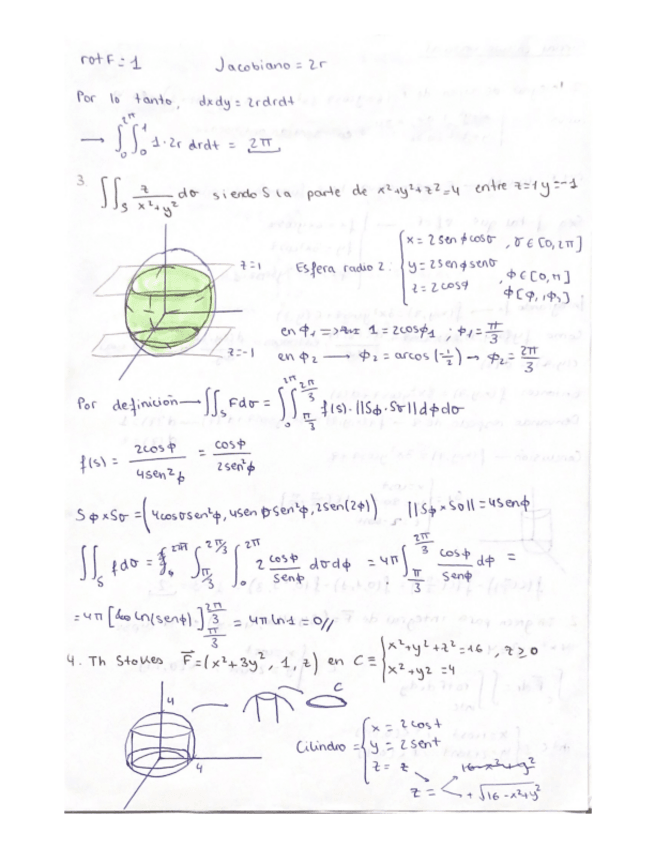 rot F = 1 Jacobiano = 2r
Por lo tanto, dxdy = 2rdrdt
→ ∫₀^2π ∫₀^1 1·2r drdt = 2π
3. ∬_S z/(x²+y²) dσ siendo S la parte de x²+y²+z²=4 entre z=1 y =-1
z=1
z=-1
Esfera radio 2: { x = 2senϕcosσ , σ ∈ [0,2π]
y = 2senϕsenσ , ϕ ∈ [0,π]
z = 2cosϕ ϕ[ϕ₁,ϕ₂]
en ϕ₁ => 1 = 2cosϕ₁ ; ϕ₁ = π/3
en ϕ₂ → ϕ₂ = arcos(-1/2) → ϕ₂ = 2π/3
Por definición → ∬_S Fdσ = ∫₀^2π ∫_π/3^2π/3 f(s)·||Sϕ·Sσ||dϕdσ
f(s) = 2cosϕ/4sen²ϕ = cosϕ/2sen²ϕ
Sϕ×Sσ = (4cosσsen²ϕ, 4senσsen²ϕ, 2sen(2ϕ)) ||Sϕ×Sσ|| = 4senϕ
∬_S fdσ = ∫_π/3^2π/3 ∫₀^2π 2 cosϕ/senϕ dσdϕ = 4π ∫_π/3^2π/3 cosϕ/senϕ dϕ =
= 4π [ln(senϕ)]_π/3^2π/3 = 4π ln 1 = 0//
4. Th Stokes F⃗ = (x²+3y², 1, z) en C ≡ { x²+y²+z²=16 , z≥0
x²+y²=4
4
4
C
Cilindro = { x = 2cost
y = 2sent
z = z
16-x²+y²
z = < +√16-x²+y²